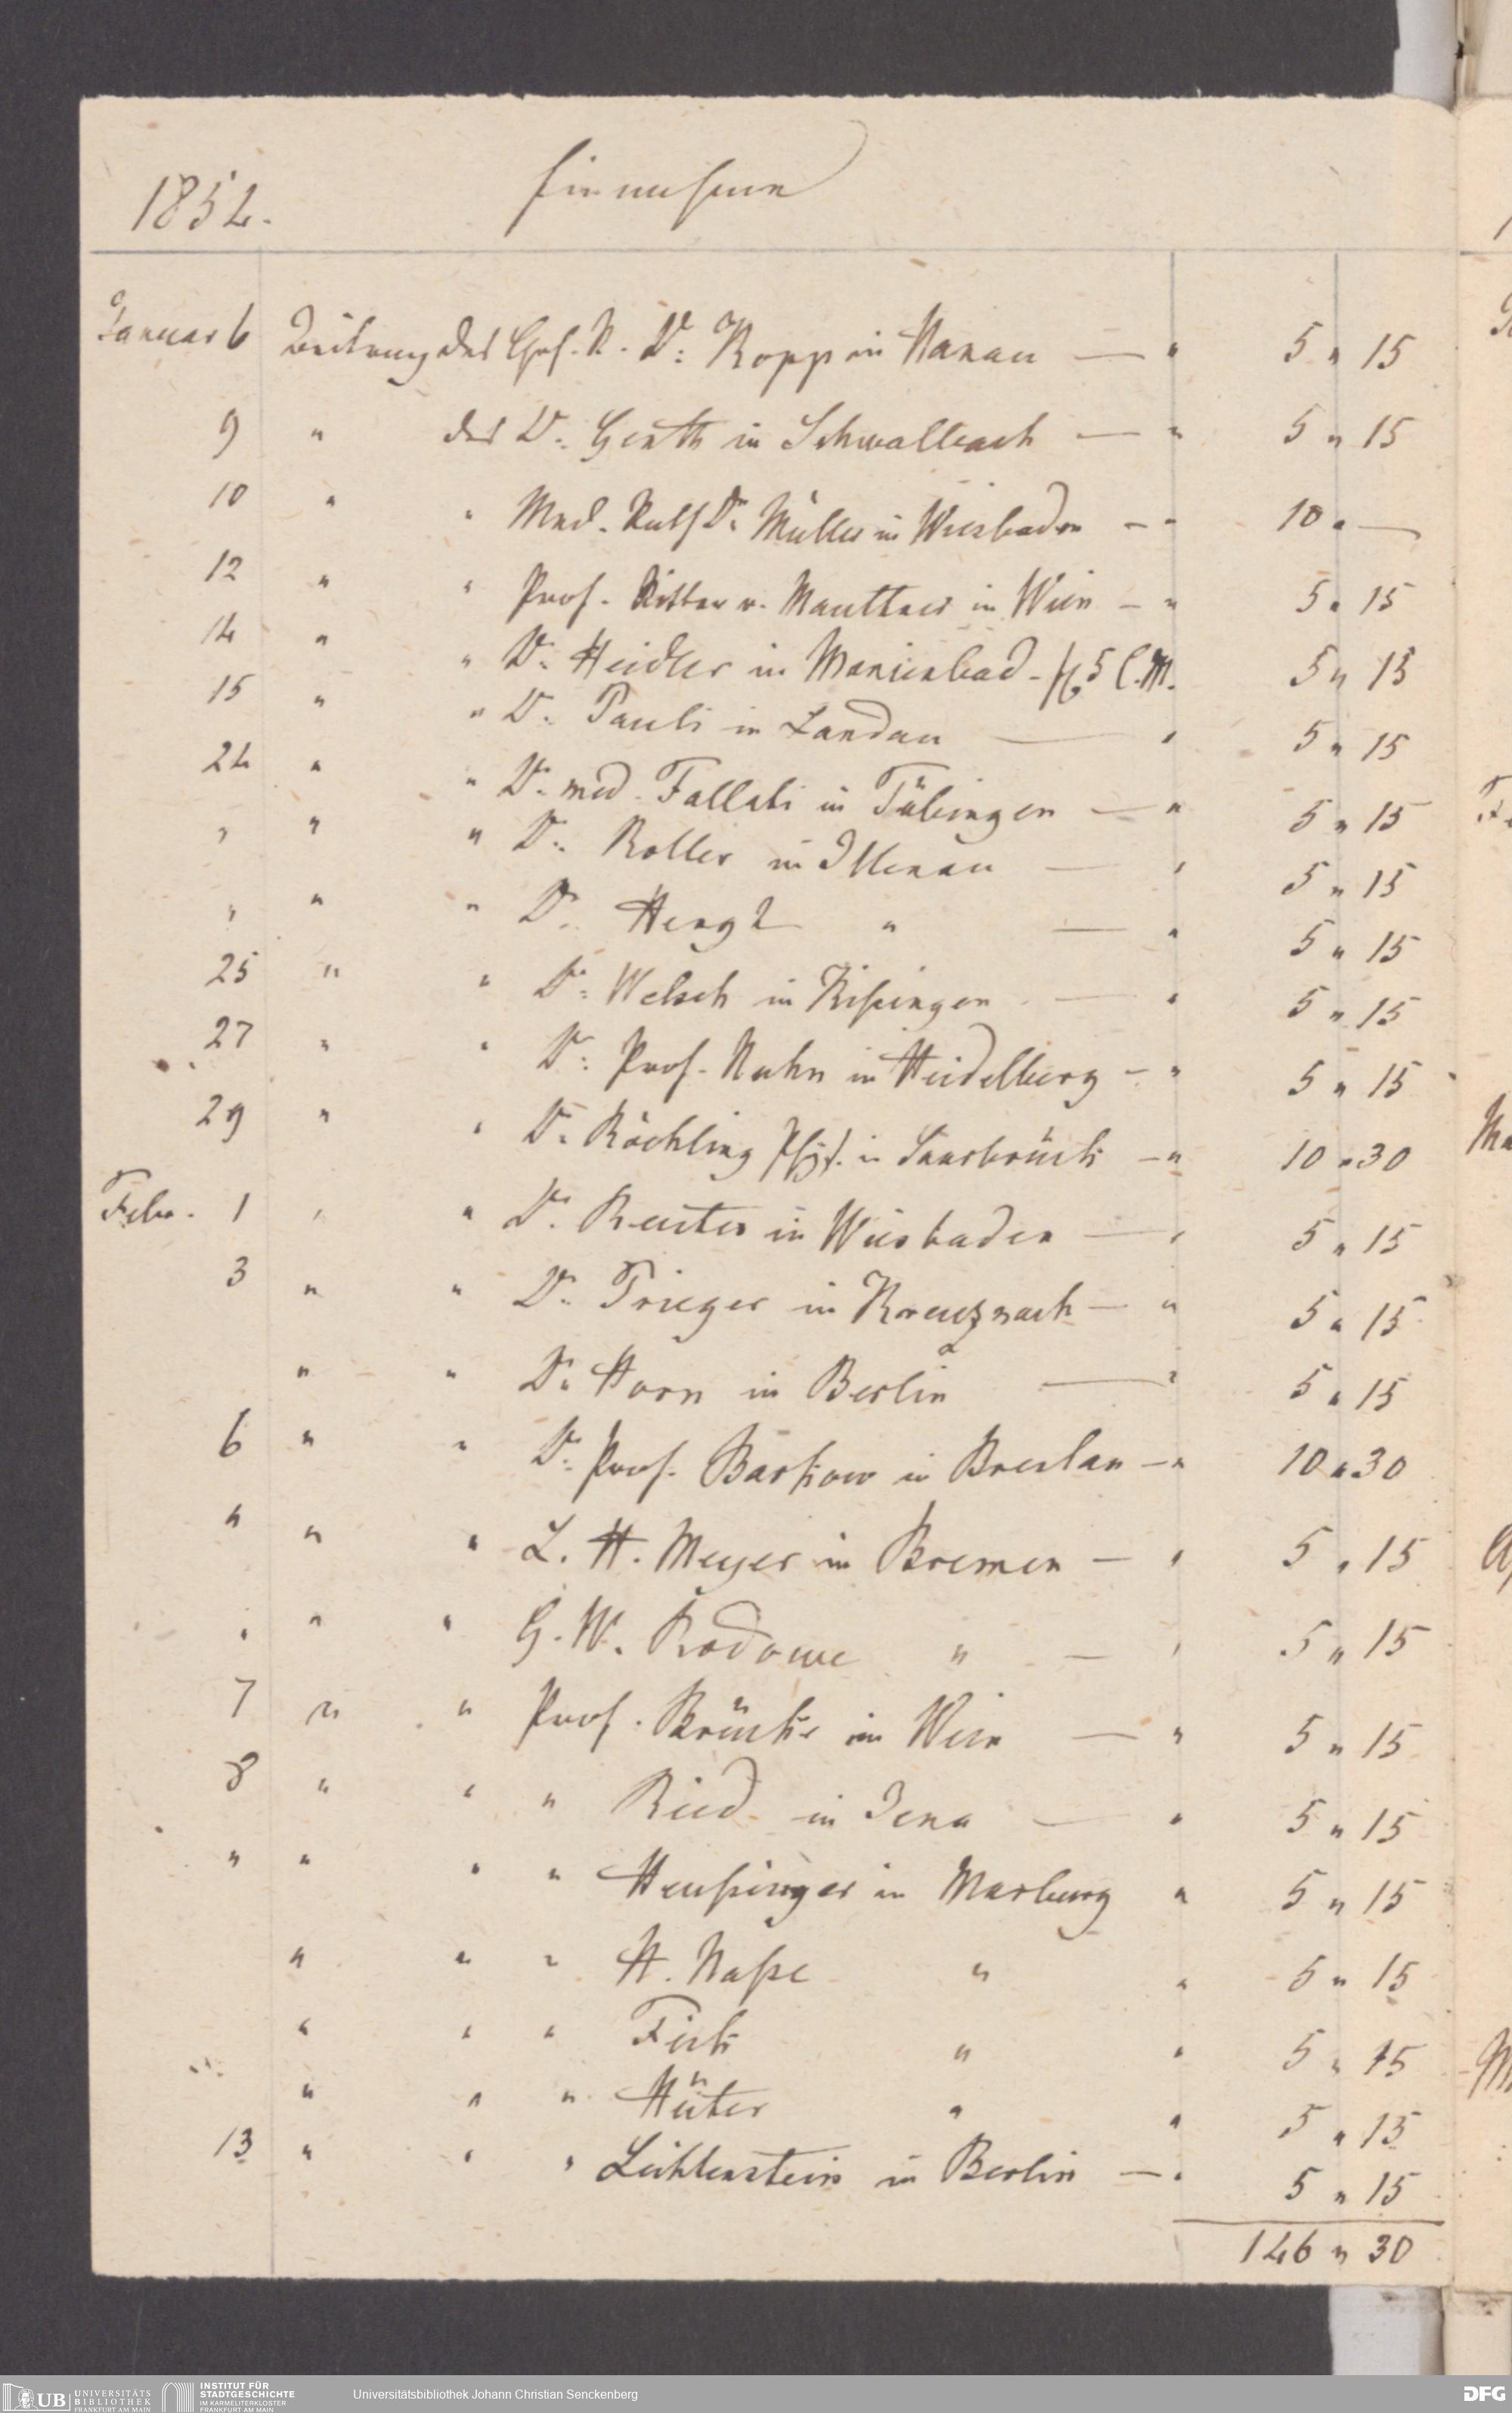 1852. Einnahme
Januar 6 Beitrag des Geh. R. Dr. Kopp in Hanau — " 5 " 15
9 " des Dr. Genth in Schwalbach — " 5 " 15
10 " " Med. Rath Dr. Müller in Wiesbaden — " 10 " —
12 " " Prof. Ritter v. Mauttner in Wien — " 5 " 15
14 " " Dr. Heidler in Marienbad - fl. 5 C.M. 5 " 15
15 " " Dr. Pauli in Landau — " 5 " 15
24 " " Dr. med. Fallati in Tübingen — " 5 " 15
" " " Dr. Roller in Illenau — " 5 " 15
" " " Dr. Hergt " — " 5 " 15
25 " " Dr. Welsch in Kißingen — " 5 " 15
27 " " Dr. Prof. Nuhn in Heidelberg — " 5 " 15
29 " " Dr. Röchling in Saarbrück — " 10 " 30
Febr. 1 " " Dr. Reuter in Wiesbaden — " 5 " 15
3 " " Dr. Prieger in Kreuznach — " 5 " 15
" " Dr. Horn in Berlin — " 5 " 15
6 " " Dr. Prof. Barkow in Breslau — " 10 " 30
" " " L. H. Meyer in Bremen — " 5 " 15
" " " G. W. Rodowe " — " 5 " 15
7 " " Prof. Brücke in Wien — " 5 " 15
8 " " " Ried in Jena — " 5 " 15
" " " " Heusinger in Marburg " 5 " 15
" " " H. Naße " " 5 " 15
" " " Fick " " 5 " 15
" " " Hüter " " 5 " 15
13 " " " Lichtenstein in Berlin — " 5 " 15
146 " 30
UB UNIVERSITÄTS BIBLIOTHEK FRANKFURT AM MAIN
INSTITUT FÜR STADTGESCHICHTE IM KARMELITERKLOSTER FRANKFURT AM MAIN
Universitätsbibliothek Johann Christian Senckenberg
DFG